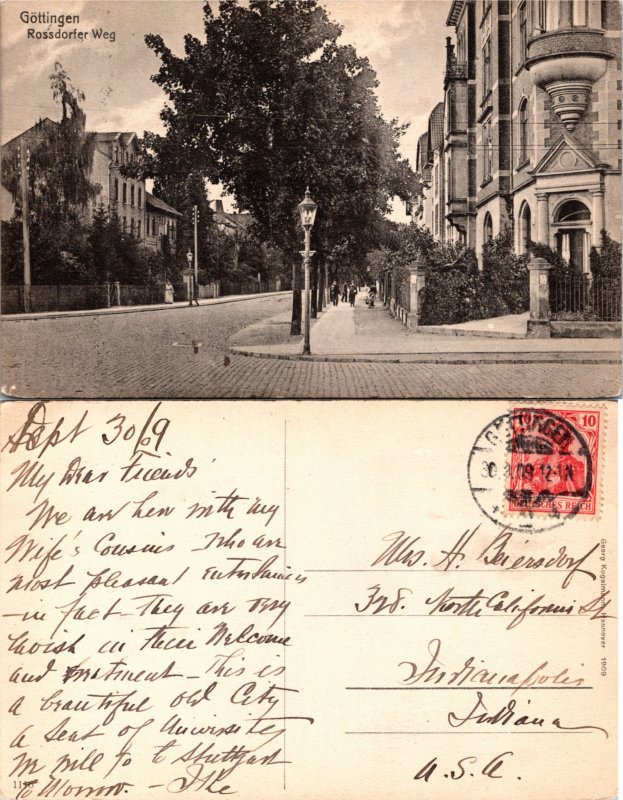 Göttingen
Rossdorfer Weg
Sept 30/09
My Dear Friends
We are here with my
Wife's Cousins who are
most pleasant entertainers
- in fact - they are very
lavish in their Welcome
and treatment - This is
a beautiful old City
a Seat of University
We will go to Stuttgart
To Morrow. - Ike
GÖTTINGEN
30.9.09.12-1N
10
DEUTSCHES REICH
Mrs. H. Beiersdorf
328. North California St
Indianapolis
Indiana
U.S.A.
Georg Kugelmann, Hannover 1909